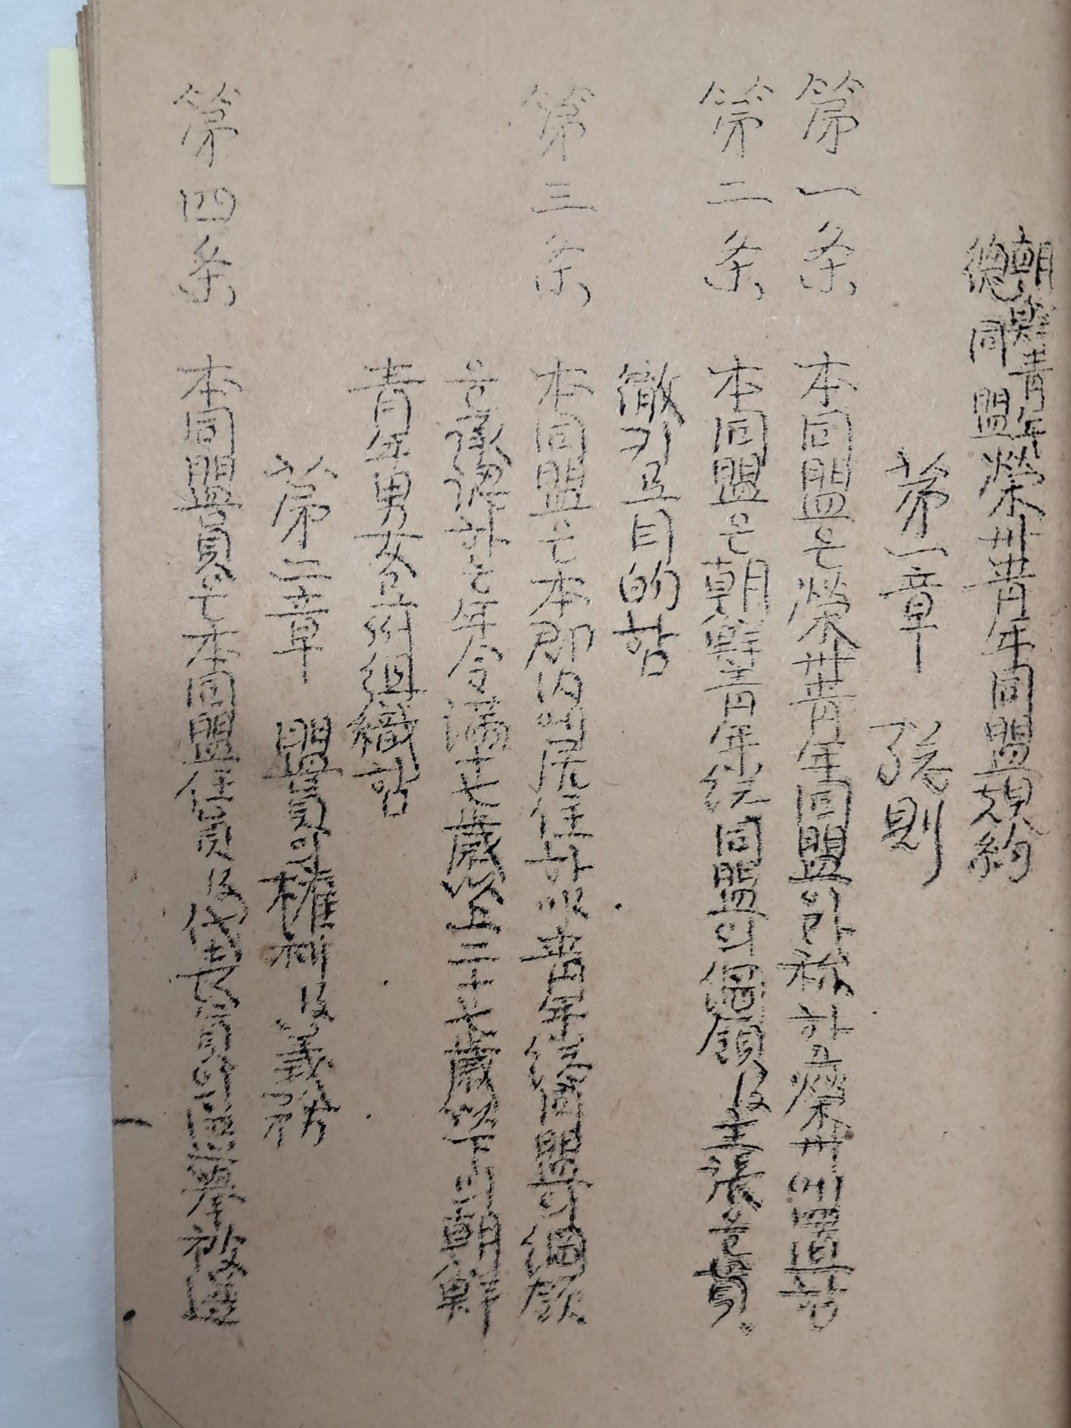 朝鮮青年
總同盟
榮州青年同盟規約
第一章 總則
第一条 本同盟은榮州青年同盟이라称하고榮州에置함
第二条 本同盟은朝鮮青年総同盟의綱領及主張을貫
徹키로目的함
第三条 本同盟은本郡内에居住하며青年総同盟의綱領
을承認하는年令満十七歳以上三十七歳以下의朝鮮
青年男女로組織함
第二章 盟員의権利及義務
第四条 本同盟員은本同盟任員及代表員의選挙被選